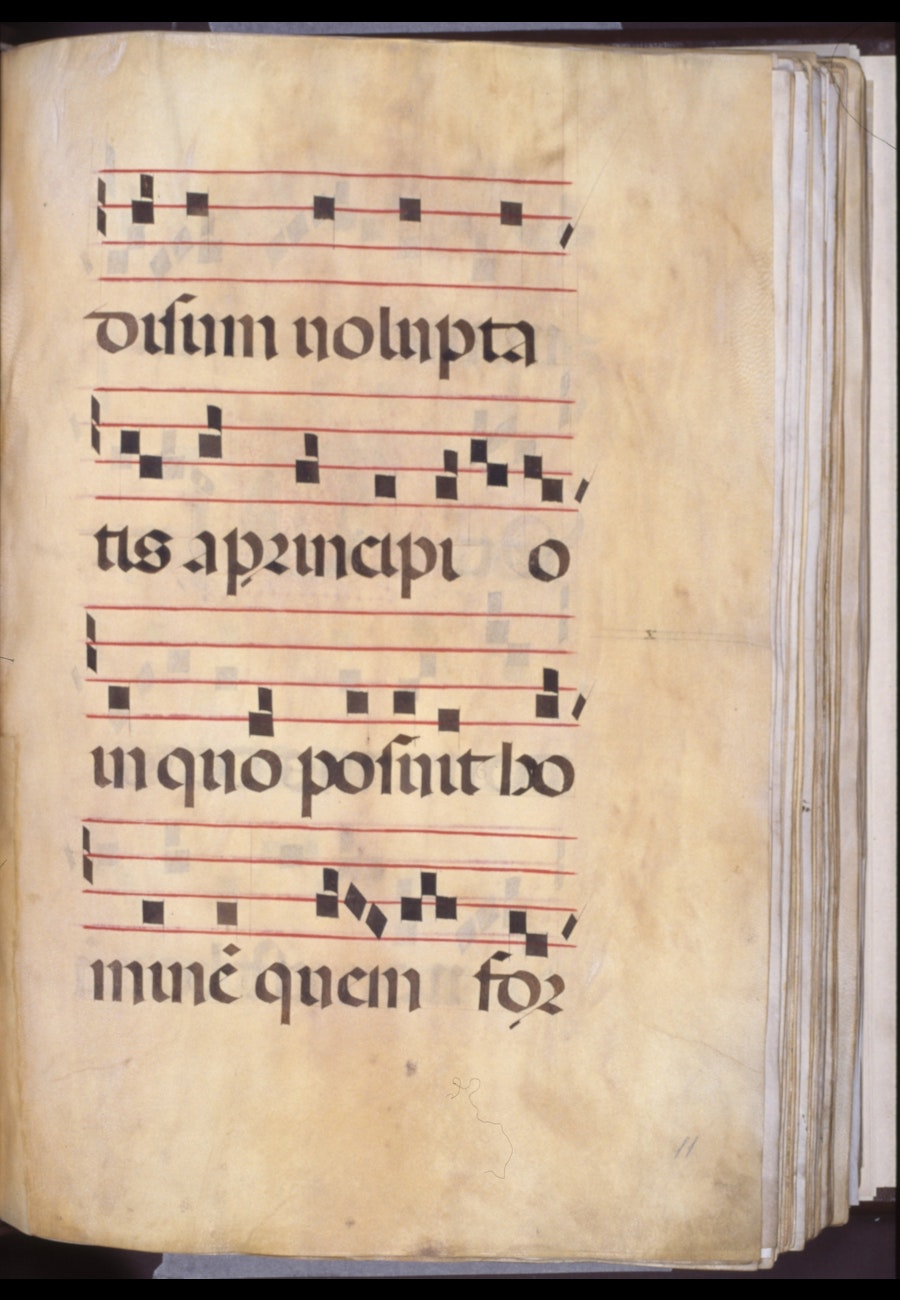 disum uolupta
tis a principi o
in quo posuit ho
minē quem for
x
11